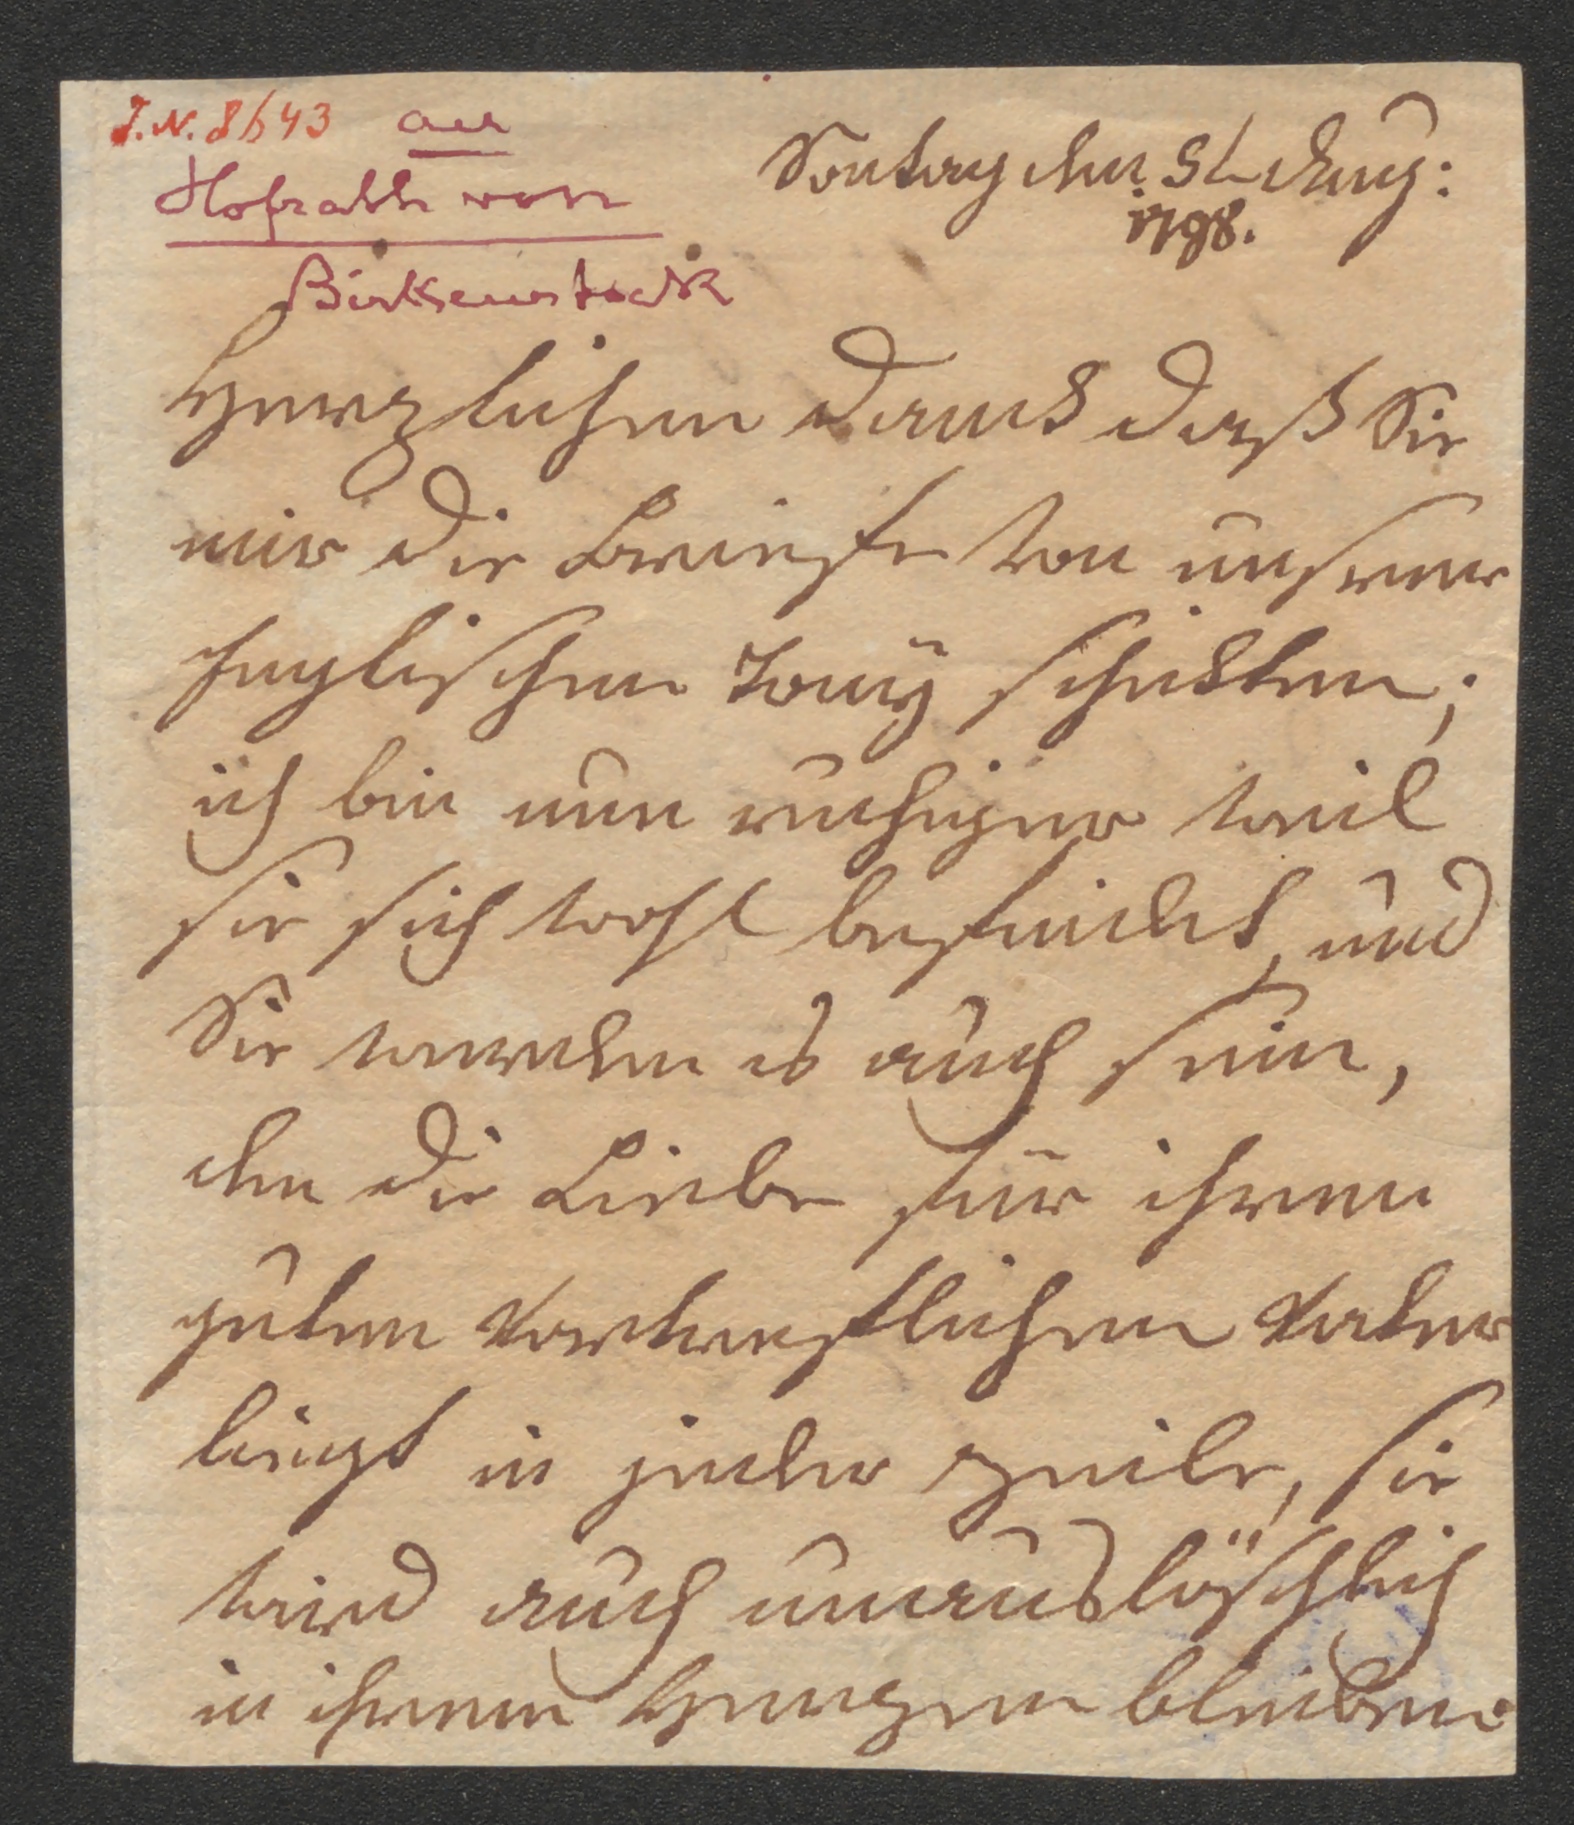 J.N. 8643
an
Hofrath von
Birkenstock
Sontag den 5t Aug:
1798.
Herzlichen Dank daß Sie
mir die Briefe von unserer
Englischen Tony schikten;
ich bin nun ruhiger weil
sie sich wohl befindet, und
Sie werden es auch sein,
den die Liebe für ihren
guten vortreflichen Vater
liegt in jeder Zeile, sie
wird auch unauslöschlich
in ihrem Herzen bleiben.